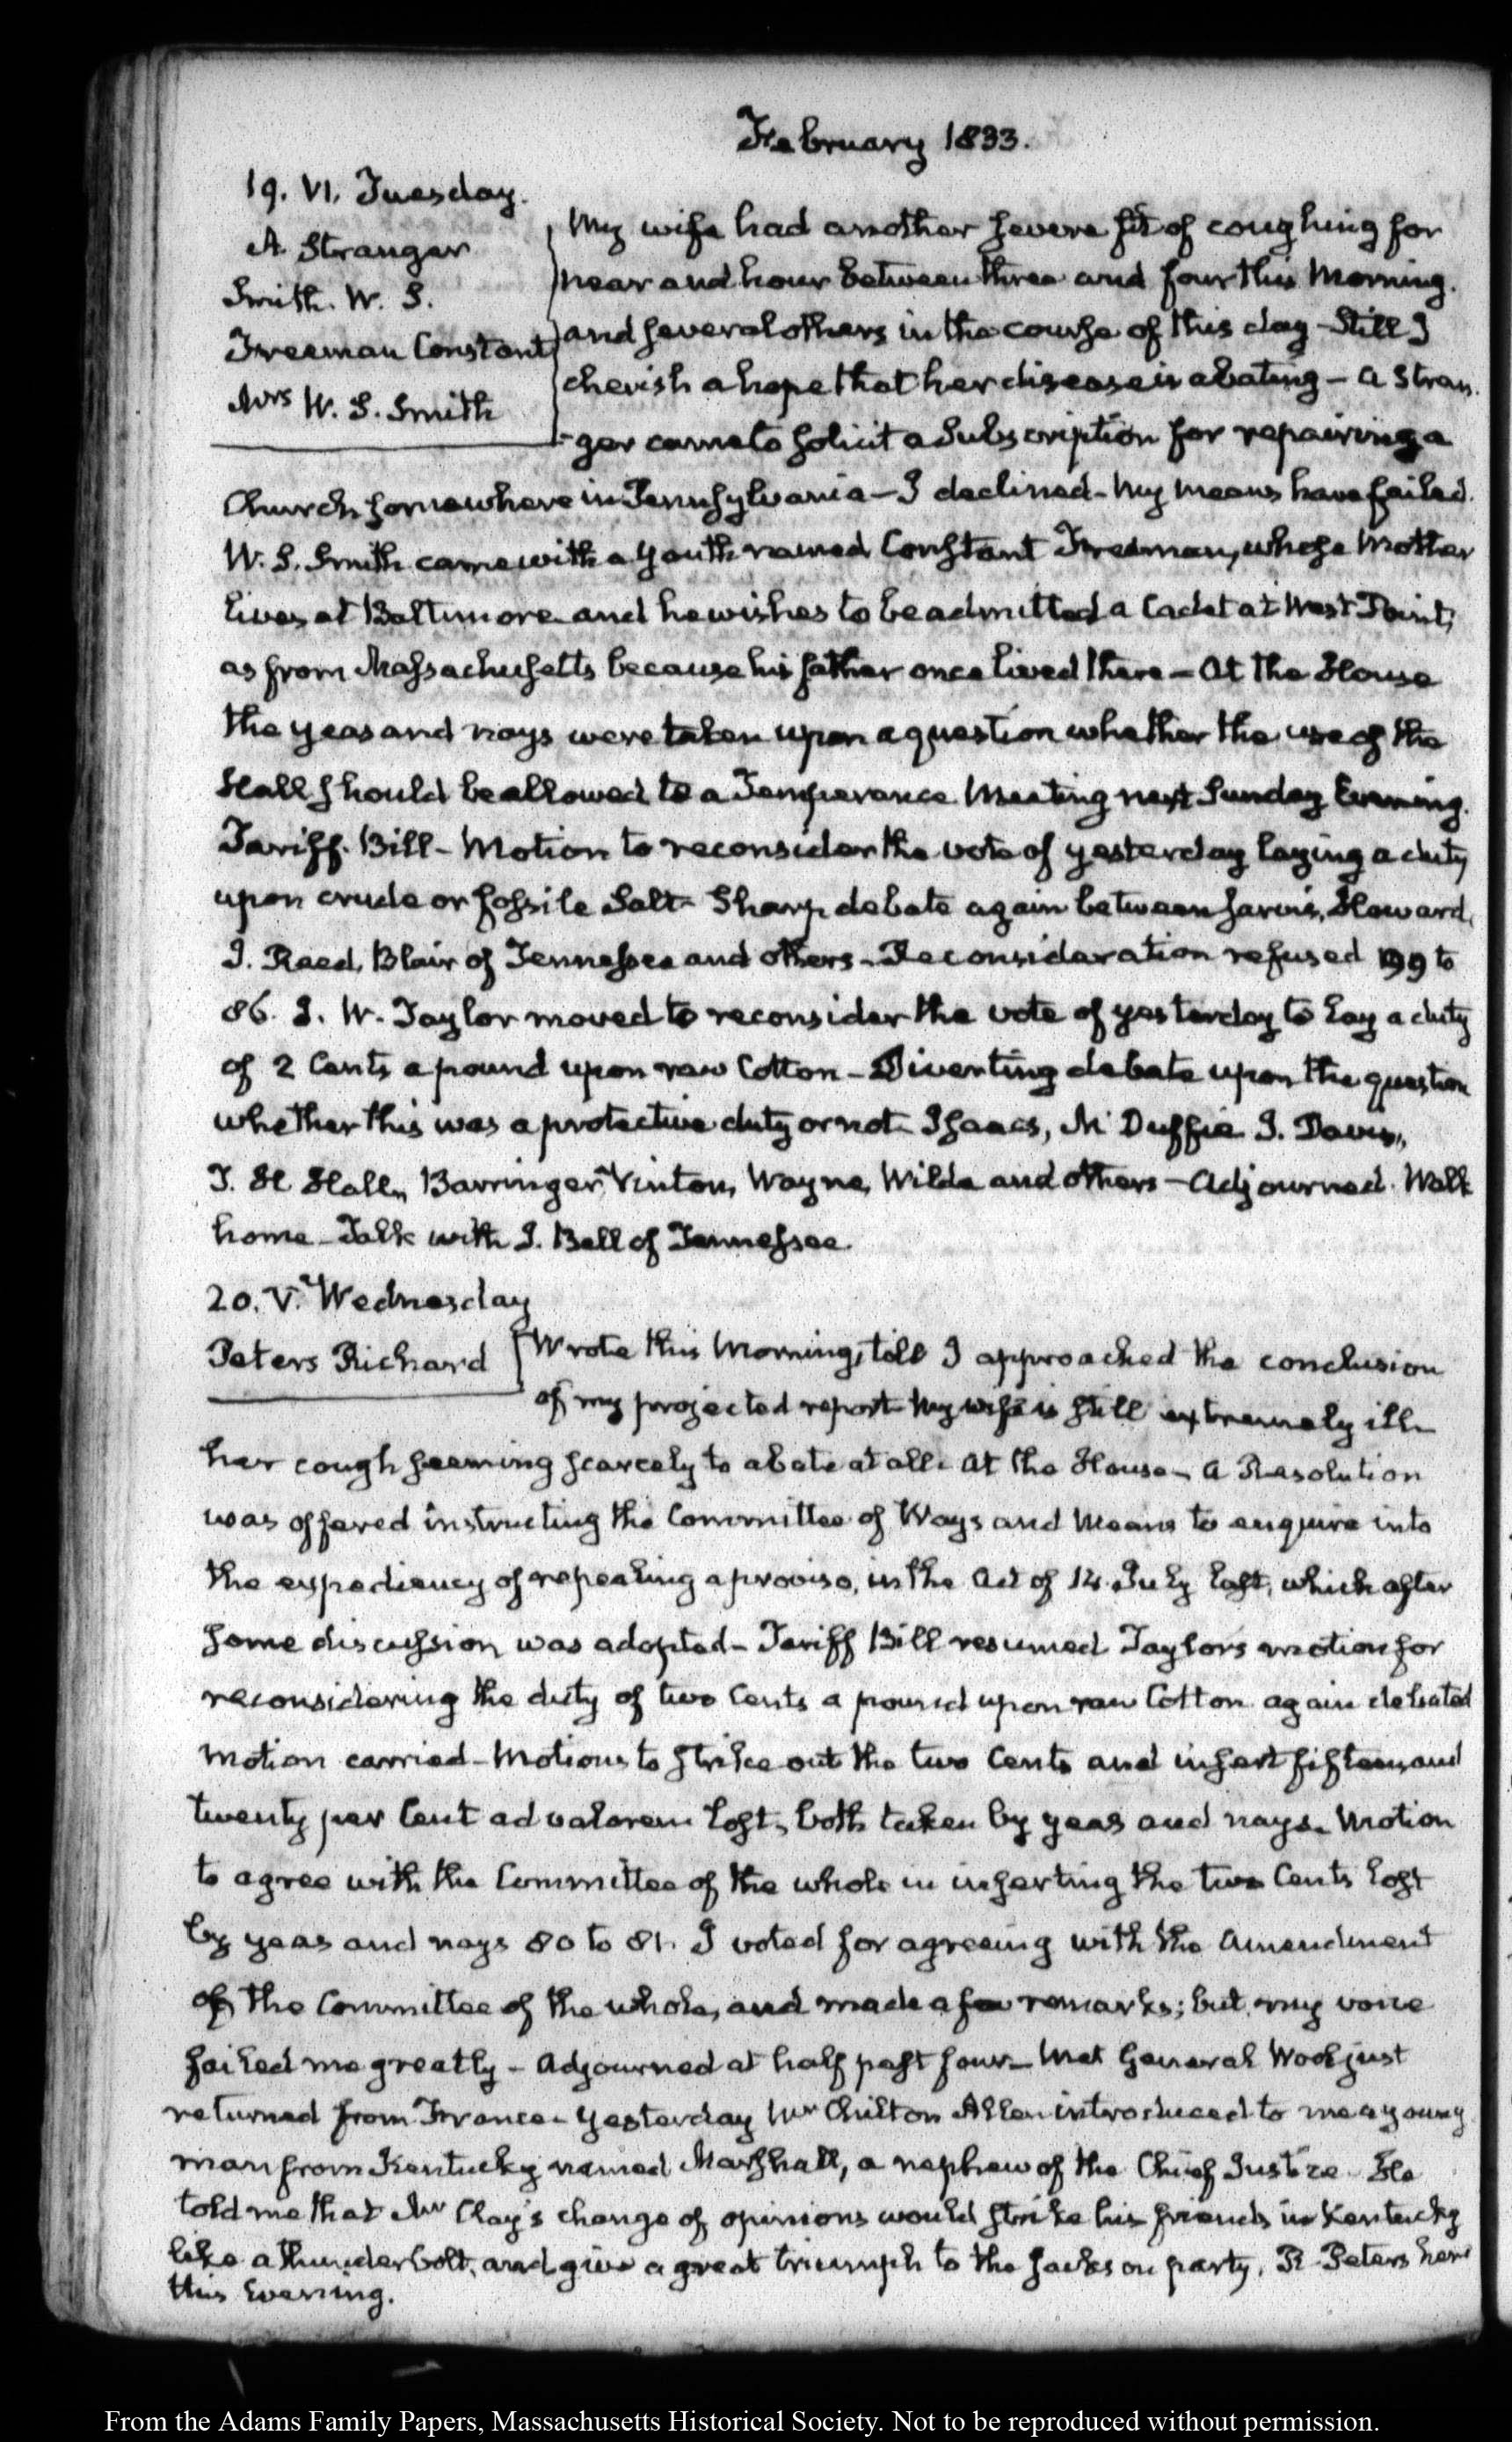 February 1833.
19. VI. Tuesday.
A Stranger
Smith. W. S.
Freeman Constant
Mrs W. S. Smith
My wife had another severe fit of coughing for
near and hour between three and four this Morning.
and several others in the course of this day - Still I
cherish a hope that her disease is abating - a Stran-
-ger came to solicit a Subscription for repairing a
Church somewhere in Pennsylvania - I declined - My means have failed.
W. S. Smith came with a Youth named Constant Freeman, whose Mother
lives at Baltimore and he wishes to be admitted a Cadet at West Point,
as from Massachusetts because his father once lived there - At the House
the yeas and nays were taken upon a question whether the use of the
Hall should be allowed to a Temperance Meeting next Sunday Evening.
Tariff. Bill - Motion to reconsider the vote of yesterday laying a duty
upon crude or fossile Salt - Sharp debate again between Jarvis, Howard,
J. Reed, Blair of Tennessee and others - Reconsideration refused to
86. J. W. Taylor moved to reconsider the vote of yesterday to lay a duty
of 2 Cents a pound upon raw Cotton - Diverting debate upon the question
whether this was a protective duty or not - Isaacs, Mc Duffie J. Davis,
T. H Hall, Barringer, Vinton, Wayne, Wilde and others - Adjourned. Walk
home - Talk with J. Bell of Tennessee.
20. V. Wednesday
Peters Richard
Wrote this Morning, till I approached the conclusion
of my projected report - My wife is still extremely ill -
her cough seeming scarcely to abate at all. At the House - A Resolution
was offered instructing the Committee of Ways and Means to enquire into
the expediency of repealing a proviso, in the Act of 14. July last, which after
some discussion was adopted - Tariff Bill resumed Taylors motion for
reconsidering the duty of two Cents a pound upon raw Cotton again debated
Motion carried - Motions to strike out the two Cents and insert fifteen and
twenty per Cent ad valorem lost, both taken by yeas and nays - Motion
to agree with the Committee of the whole in inserting the two Cents lost
by yeas and nays 80 to 81. I voted for agreeing with the Amendment
of the Committee of the whole, and made a few remarks; but my voice
failed me greatly - Adjourned at half past four - Met General Wool just
returned from France - Yesterday Mr Chilton Allen introduced to me a young
man from Kentucky named Marshall, a nephew of the Chief Justice - He
told me that Mr Clay's change of opinions would strike his friends in Kentucky
like a thunderbolt, and give a great triumph to the Jackson party, R. Peters here
this Evening.
From the Adams Family Papers, Massachusetts Historical Society. Not to be reproduced without permission.